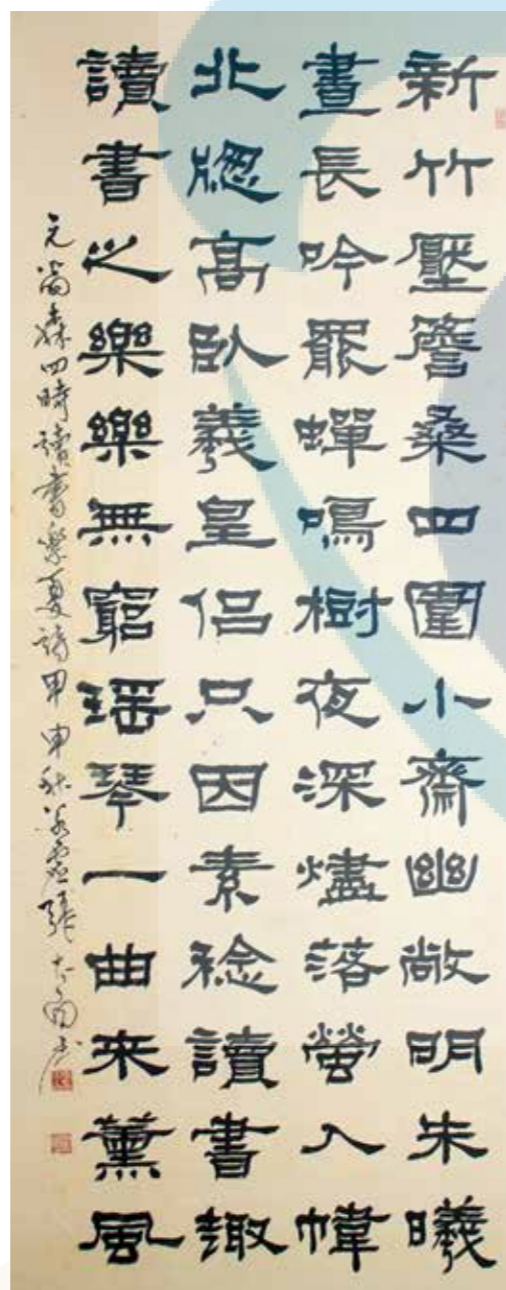 新竹壓簷桑四圍小齋幽敞明朱曦
晝長吟罷蟬鳴樹夜深燼落螢入幃
北牕高臥羲皇侶只因素稔讀書趣
讀書之樂樂無窮瑤琴一曲來薰風
元翁森四時讀書樂夏詩甲申秋張書